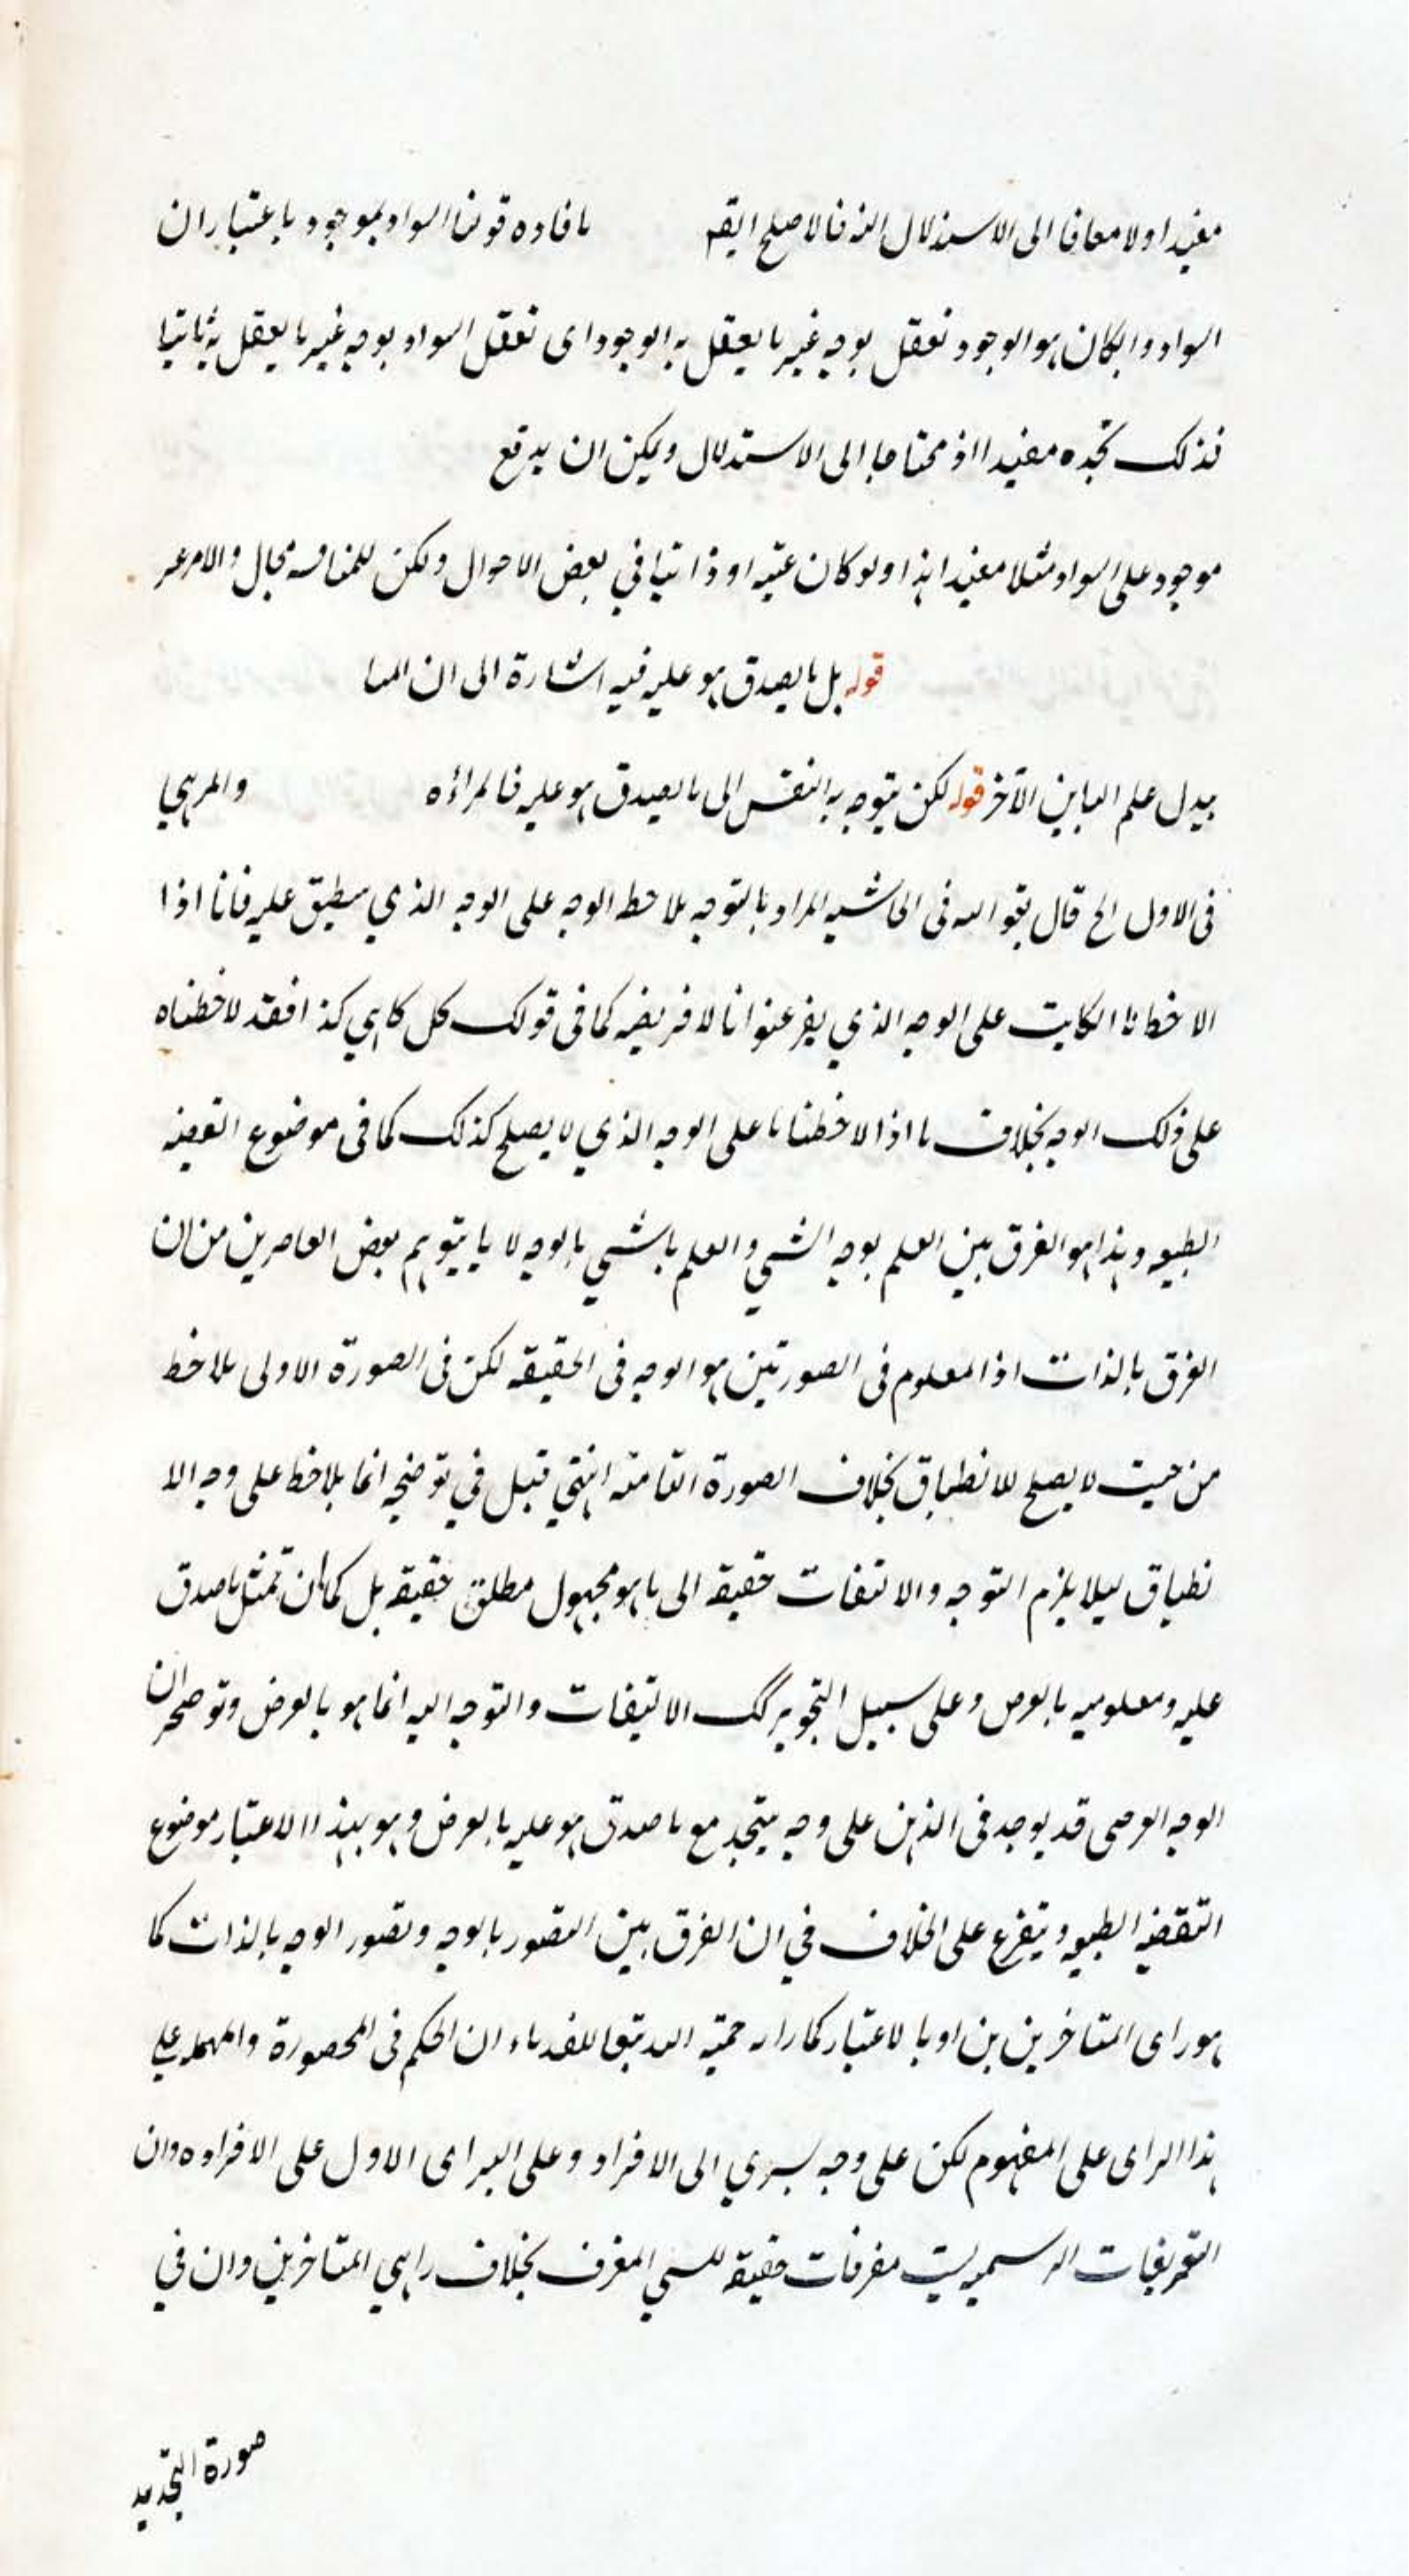 مفيدا ولا معافا الى الاستدلال الذ فالاصلح ايقه مافاده قولنا السواد بموجود باعتبار ان
السواد وانكان هو الوجود نعقل بوجه غير ما يعقل به الوجود اى نعقل السواد بوجه غير ما يعقل به ثانيا
فذلك تجده مفيدا اذ محتاجا الى الاستدلال ويمكن ان يدفع
موجود على السواد مثلا مفيد ابدا ولو كان عينه او ذاتيا في بعض الاحوال ولكن للمنافسه مجال والامر
قوله بل ما يصدق هو عليه فيه اشارة الى ان
يدل علم المباين الآخر قوله لكن يتوجه به النفس الى ما يصدق هو عليه فالمراؤه والمر
فى الاول الخ قال فى الحاشيه المراد بالتوجه ملاحظ الوجه على الوجه الذي ينطبق عليه فانا اذا
الاخطانا الكاتب على الوجه الذي عنوانا لا فريضه كما فى قولك كل كذا فقد لاخطناه
على ذلك الوجه بخلاف ما اذا لاخطنا ما على الوجه الذي لا يصلح كذلك كما فى موضوع القضيه
الطبيعيه وهذا هو الفرق بين العلم بوجه الشي والعلم بالشي بالوجه لا ما يتوهم بعض المعاصرين من ان
الفرق بالذات اذ المعلوم فى الصورتين هو الوجه فى الحقيقه لكن فى الصورة الاولى يلاخط
من حيث لا يصلح للانطباق بخلاف الصورة الثانيه انتهى قيل في توضيحه انما يلاخط على وجه الا
نطباق ليلا يلزم التوجه والالتفات حقيقه الى ما هو مجهول مطلق حقيقه بل كما ان تمثل ما صدق
عليه ومعلوميه بالعرض وعلى سبيل التجويز كك الالتيفات والتوجه اليه انما هو بالعرض وتوضيحه ان
الوجه العرضى قد يوجد فى الذهن على وجه يتحد مع ما صدق هو عليه بالعرض وهو بهذا الاعتبار موضوع
القضيه الطبيعيه ويتفرع على الخلاف في ان الفرق بين التصور بالوجه وتصور الوجه بالذات كما
هو راى المتاخرين او بالاعتبار كما راه تبعا للقدماء ان الحكم فى المحصورة والمهمله على
هذا الراى على المفهوم لكن على وجه يسري الى الافراد وعلى الراى الاول على الافراد وان
التعريفات الرسميه ليست معرفات حقيقه للشي المعرف بخلاف راى المتاخرين وان في
صورة التجديد